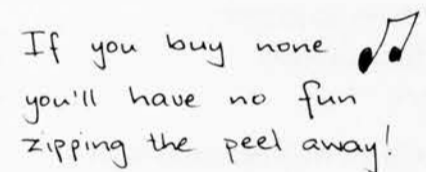 If you buy none
you'll have no fun
zipping the peel away!